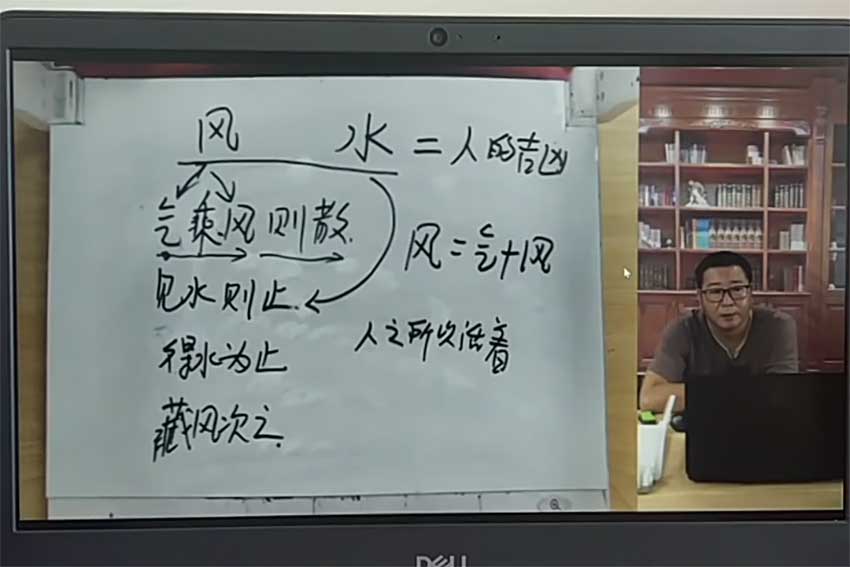 风 水 = 人的吉凶
气乘风则散.
风 = 气 + 风
见水则止.
人之所以活着
得水为止
藏风次之.
DELL